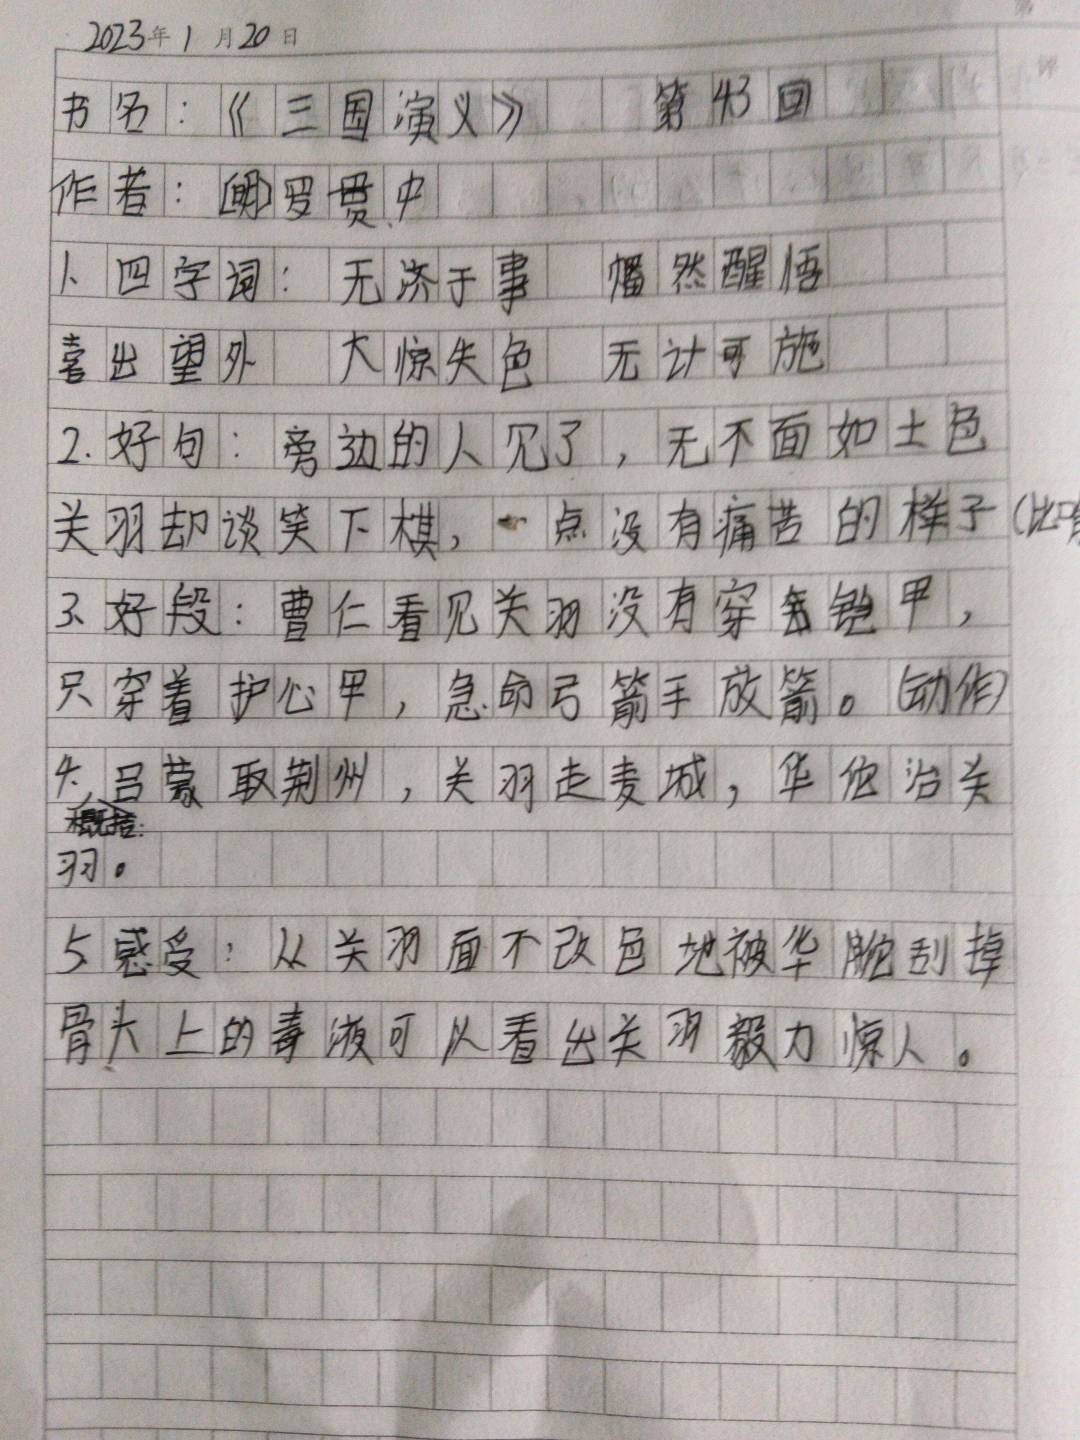 2023年1月20日
书名：《三国演义》 第43回
作者：[明]罗贯中
1、四字词：无济于事 幡然醒悟
喜出望外 大惊失色 无计可施
2.好句：旁边的人见了，无不面如土色
关羽却谈笑下棋，一点没有痛苦的样子(比
3、好段：曹仁看见关羽没有穿铠甲，
只穿着护心甲，急命弓箭手放箭。(动作)
4、吕蒙取荆州，关羽走麦城，华佗治关
概括：
羽。
5、感受：从关羽面不改色地被华 刮掉
骨头上的毒液可以看出关羽毅力惊人。